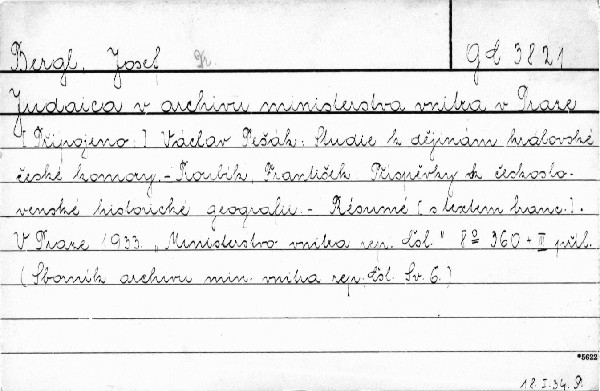 Bergl, Josef Dr. Gd 3821
Judaica v archivu ministerstva vnitra v Praze
[Připojeno:] Václav Pešák: Studie k dějinám královské
české komory. - Roubík, František Příspěvky k českoslo-
venské historické geografii. - Résumé (s textem franc.).
V Praze 1933. „Ministerstvo vnitra rep. čsl." 8º 360 + III příl.
(Sborník archivu min. vnitra rep. čsl. Sv. 6.)
*5622
18.I.34.